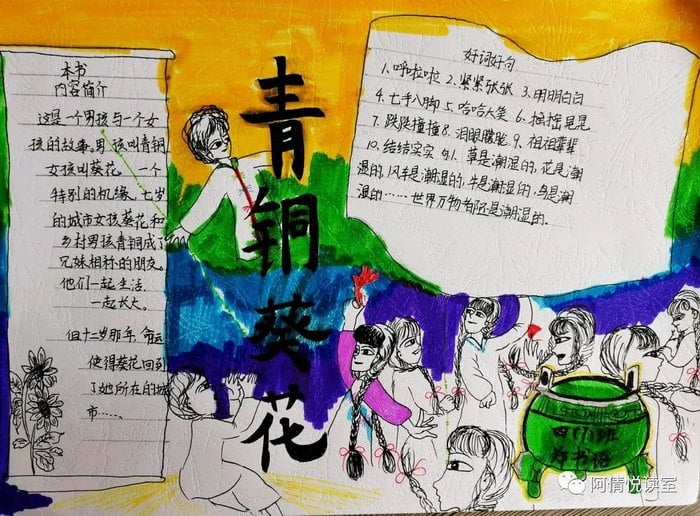 本书
内容简介
这是一个男孩与一个女
孩的故事。男孩叫青铜
女孩叫葵花。一个
特别的机缘，七岁
的城市女孩葵花和
乡村男孩青铜成了
兄妹相称的朋友。
他们一起生活
一起长大。
但十二岁那年，命运
使得葵花回到
了她所在的城
市……
青铜葵花
好词好句
1、呼啦啦 2、紧紧张张 3、明明白白
4、七手八脚 5、哈哈大笑 6、摇摇晃晃
7、跌跌撞撞 8、泪眼朦胧 9、祖祖辈辈
10、结结实实 11、草是潮湿的，花是潮
湿的，风车是潮湿的，牛是潮湿的，鸟是潮
湿的……世界万物都还是潮湿的.
四(1)班
郑书语
阿倩悦读室